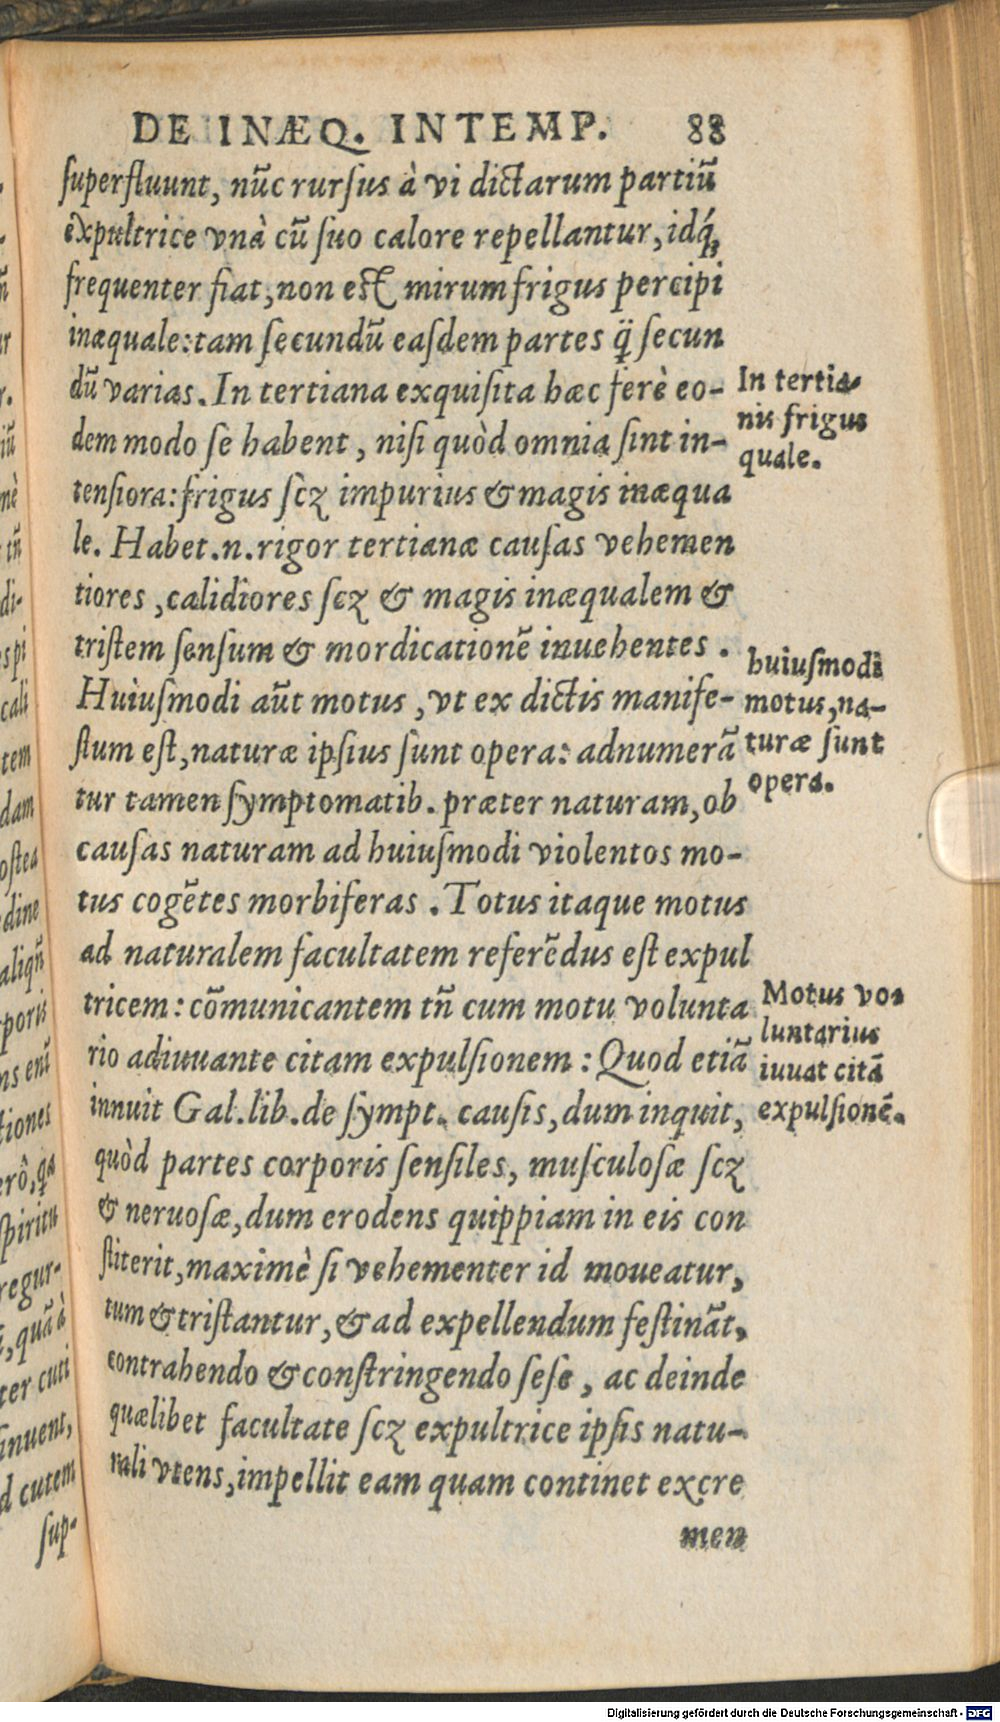 DE INÆQ. INTEMP. 88
superfluunt, nũc rursus à vi dictarum partiũ
expultrice vnà cũ suo calore repellantur, idq́;
frequenter fiat, non est mirum frigus percipi
inæquale: tam secundũ easdem partes q̈̃ secun
dũ varias. In tertiana exquisita hæc ferè eo-
dem modo se habent, nisi quòd omnia sint in-
tensiora: frigus scꝫ impurius & magis inæqua
le. Habet .n. rigor tertianæ causas vehemen
tiores, calidiores scꝫ & magis inæqualem &
tristem sensum & mordicationẽ inuehentes.
Huiusmodi aũt motus, vt ex dictis manife-
stum est, naturæ ipsius sunt opera: adnumerã
tur tamen symptomatib. præter naturam, ob
causas naturam ad huiusmodi violentos mo-
tus cogẽtes morbiferas. Totus itaque motus
ad naturalem facultatem referẽdus est expul
tricem: cõmunicantem tñ cum motu volunta
rio adiuuante citam expulsionem: Quod etiã
innuit Gal. lib. de sympt. causis, dum inquit,
quòd partes corporis sensiles, musculosæ scꝫ
& neruosæ, dum erodens quippiam in eis con
stiterit, maximè si vehementer id moueatur,
tum & tristantur, & ad expellendum festinãt,
contrahendo & constringendo sese, ac deinde
quælibet facultate scꝫ expultrice ipsis natu-
rali vtens, impellit eam quam continet excre
men
In tertia-
nis frigus
quale.
huiusmodi
motus, na-
turæ sunt
opera.
Motus vo-
luntarius
iuuat citã
expulsionẽ.
di-
cali
tem
dam
ostea
dine
poris
tiones
spiritu
regur-
ter cuti
inuent,
d cutem
sup-
Digitalisierung gefördert durch die Deutsche Forschungsgemeinschaft - DFG